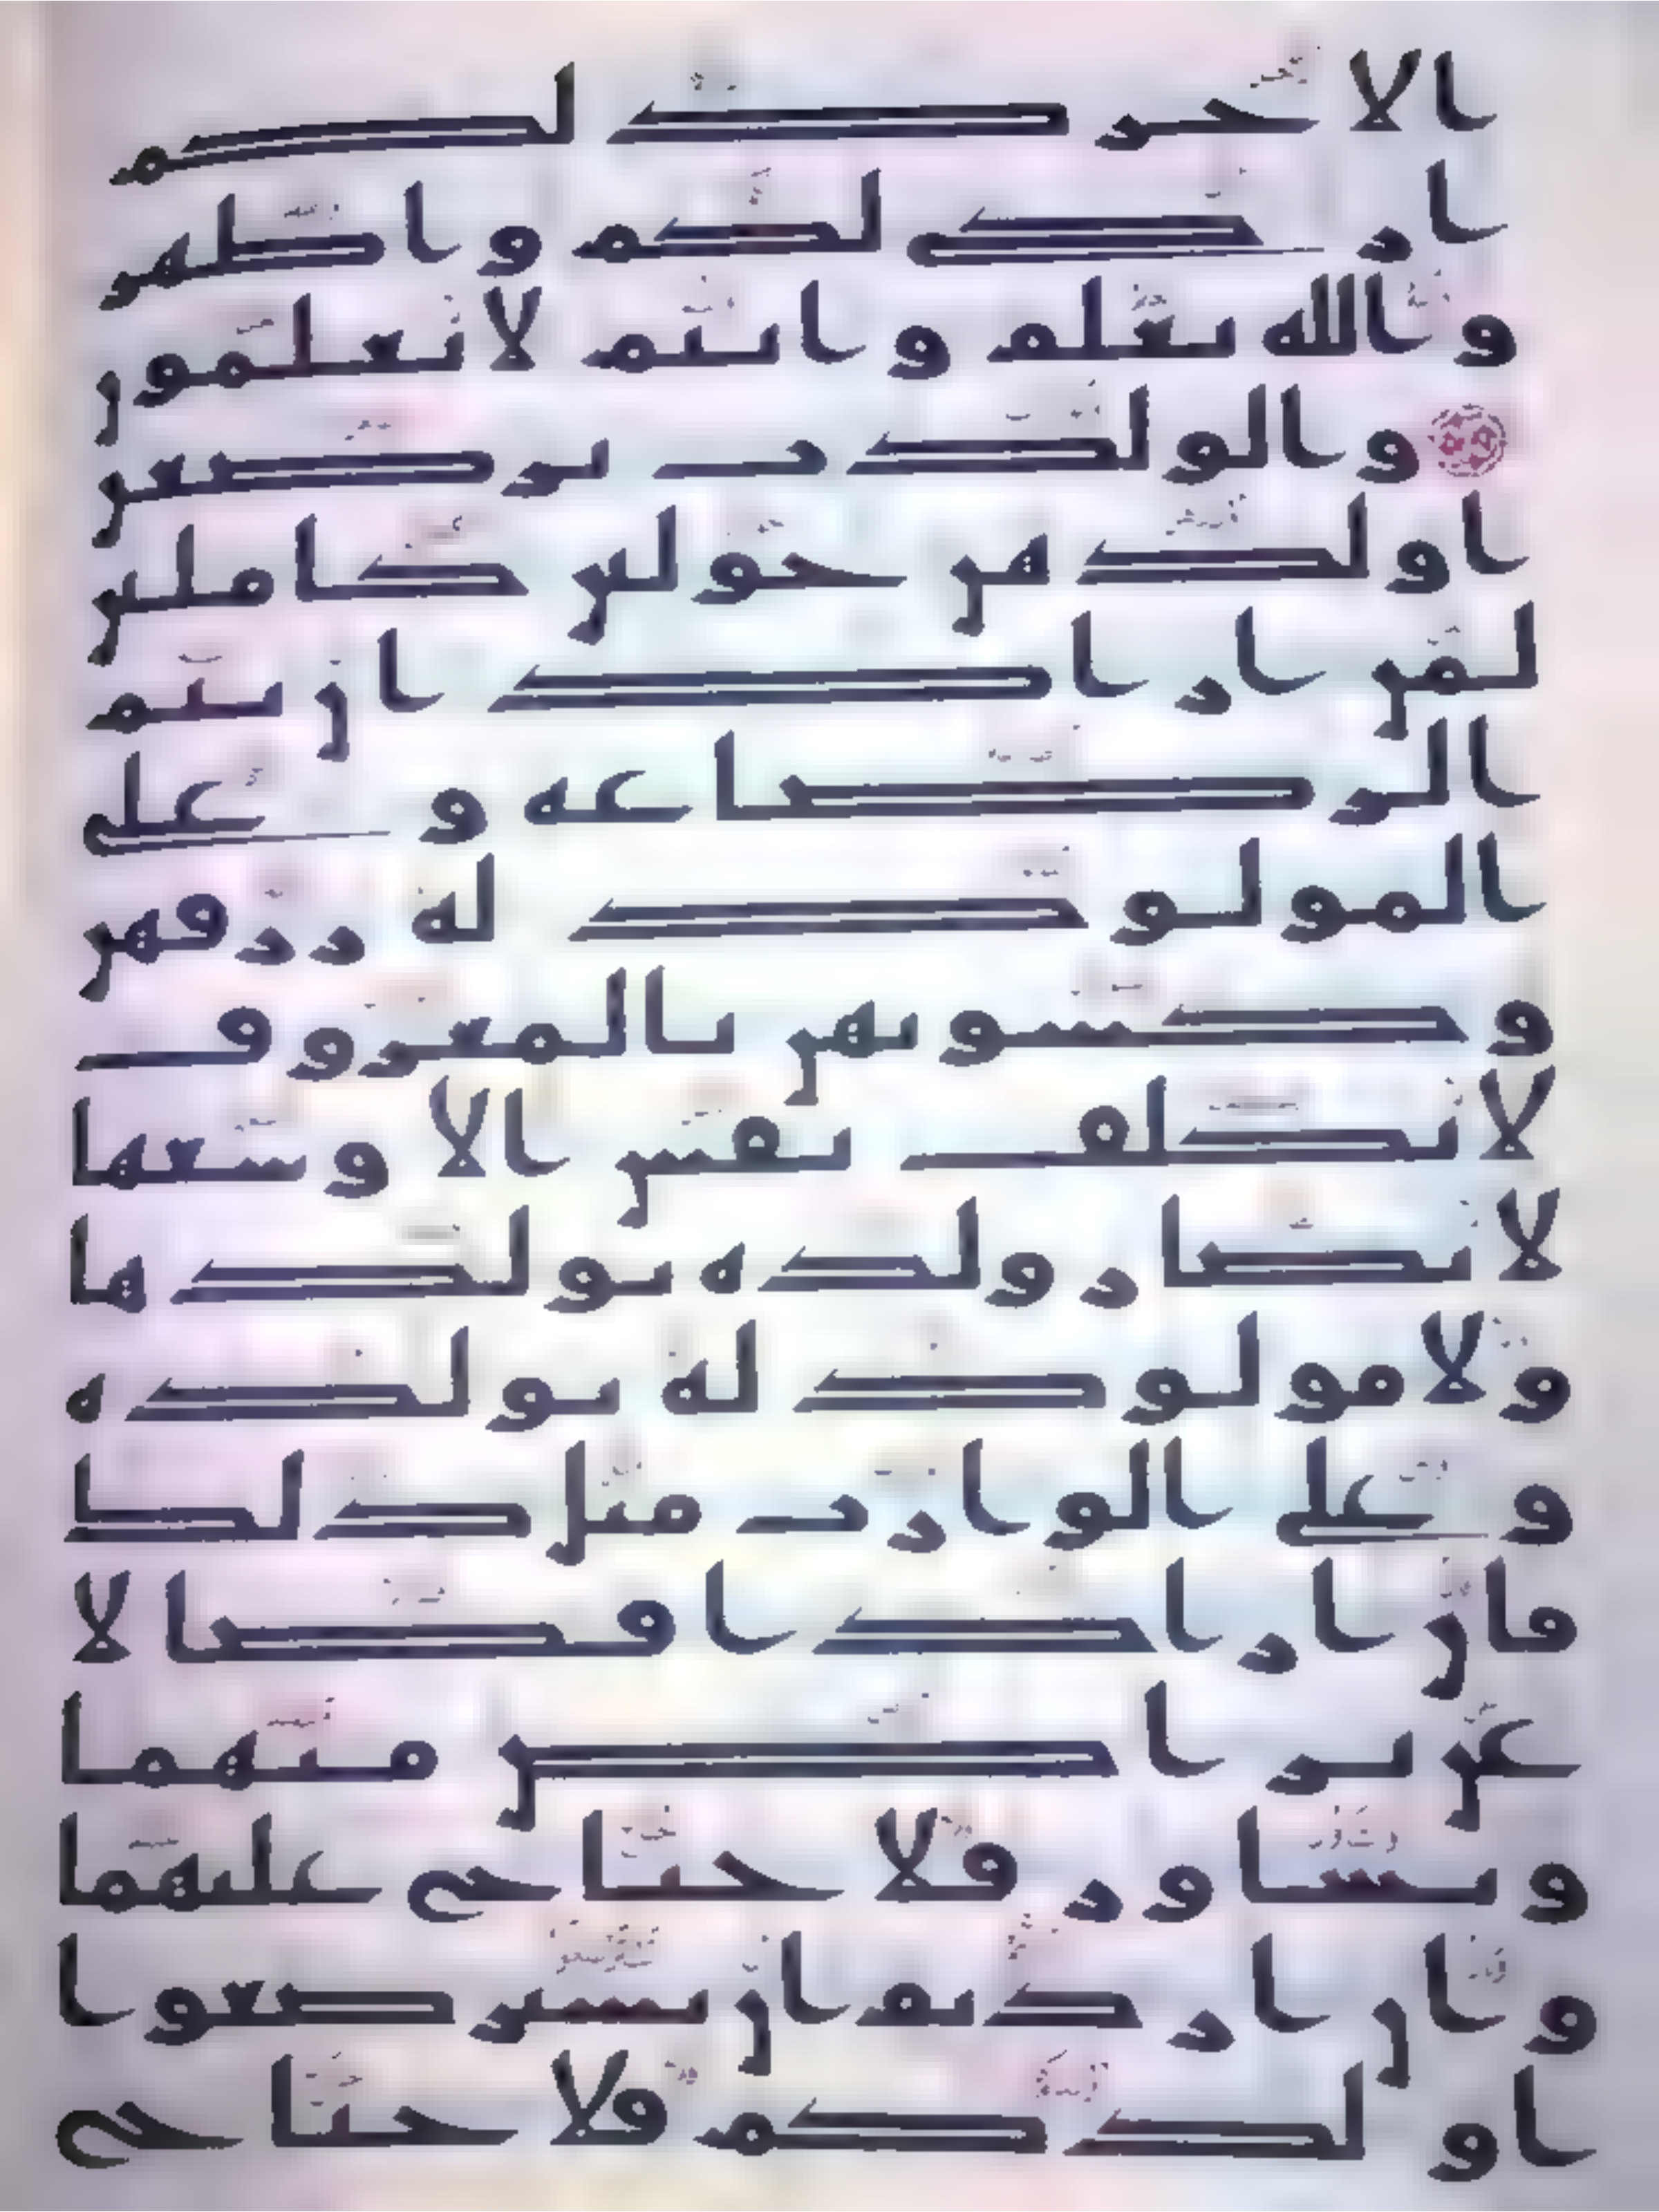 الاخر ذلكم
ازكى لكم واطهر
والله يعلم وانتم لا تعلمون
والولدت يرضعن
اولدهن حولين كاملين
لمن اراد ان يتم
الرضاعه وعلى
المولود له رزقهن
وكسوتهن بالمعروف
لا تكلف نفس الا وسعها
لا تضار ولده بولدها
ولا مولود له بولده
وعلى الوارث مثل ذلك
فان ارادا فصالا
عن تراض منهما
وتشاور فلا جناح عليهما
وان اردتم ان تسترضعوا
اولدكم فلا جناح